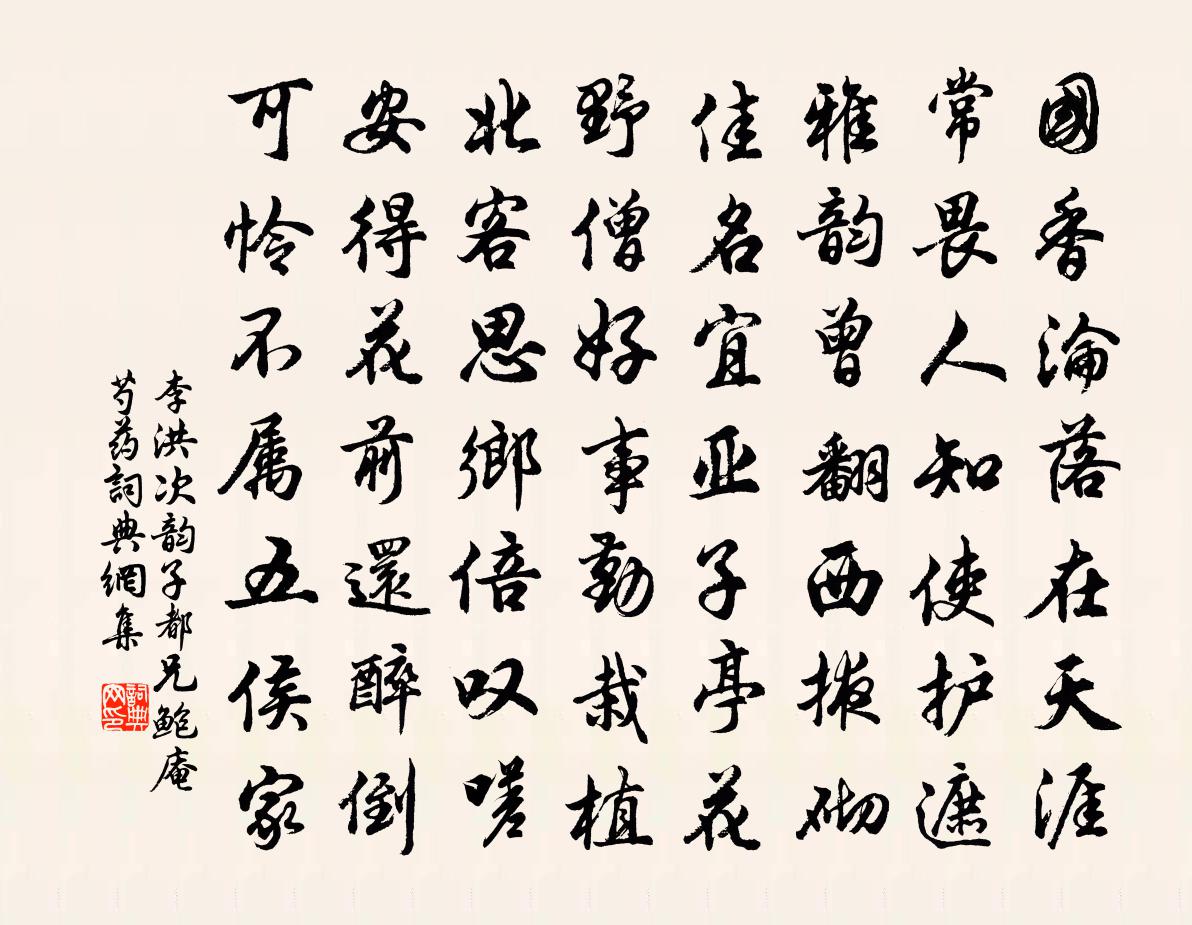 國香淪落在天涯
常畏人知使护遮
雅韵曾翻西掖砌
佳名宜亚子亭花
野僧好事勤栽植
北客思鄉倍叹嗟
安得花前還醉倒
可怜不属五侯家
李洪次韵子都兄鲍庵
芍药詞典網集
詞典网印